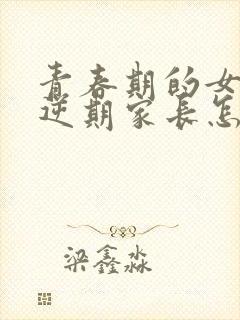 青春期的女
逆期家长怎
梁鑫淼